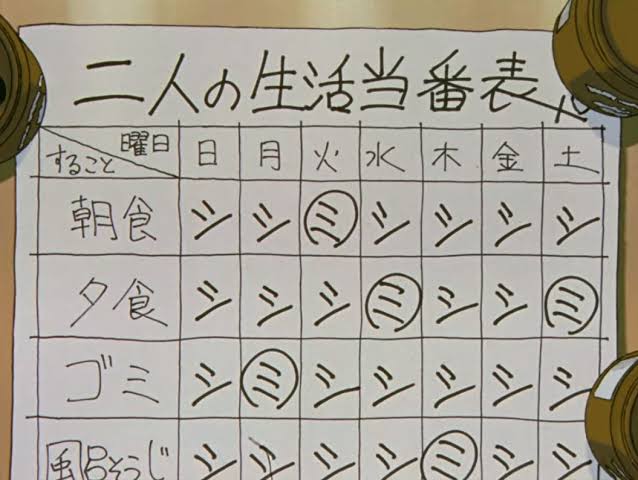 二人の生活当番表
曜日 日 月 火 水 木 金 土
すること
朝食 シ シ ミ シ シ シ シ
夕食 シ シ シ ミ シ シ ミ
ゴミ シ ミ シ シ シ シ シ
風呂そうじ シ シ シ シ ミ シ シ